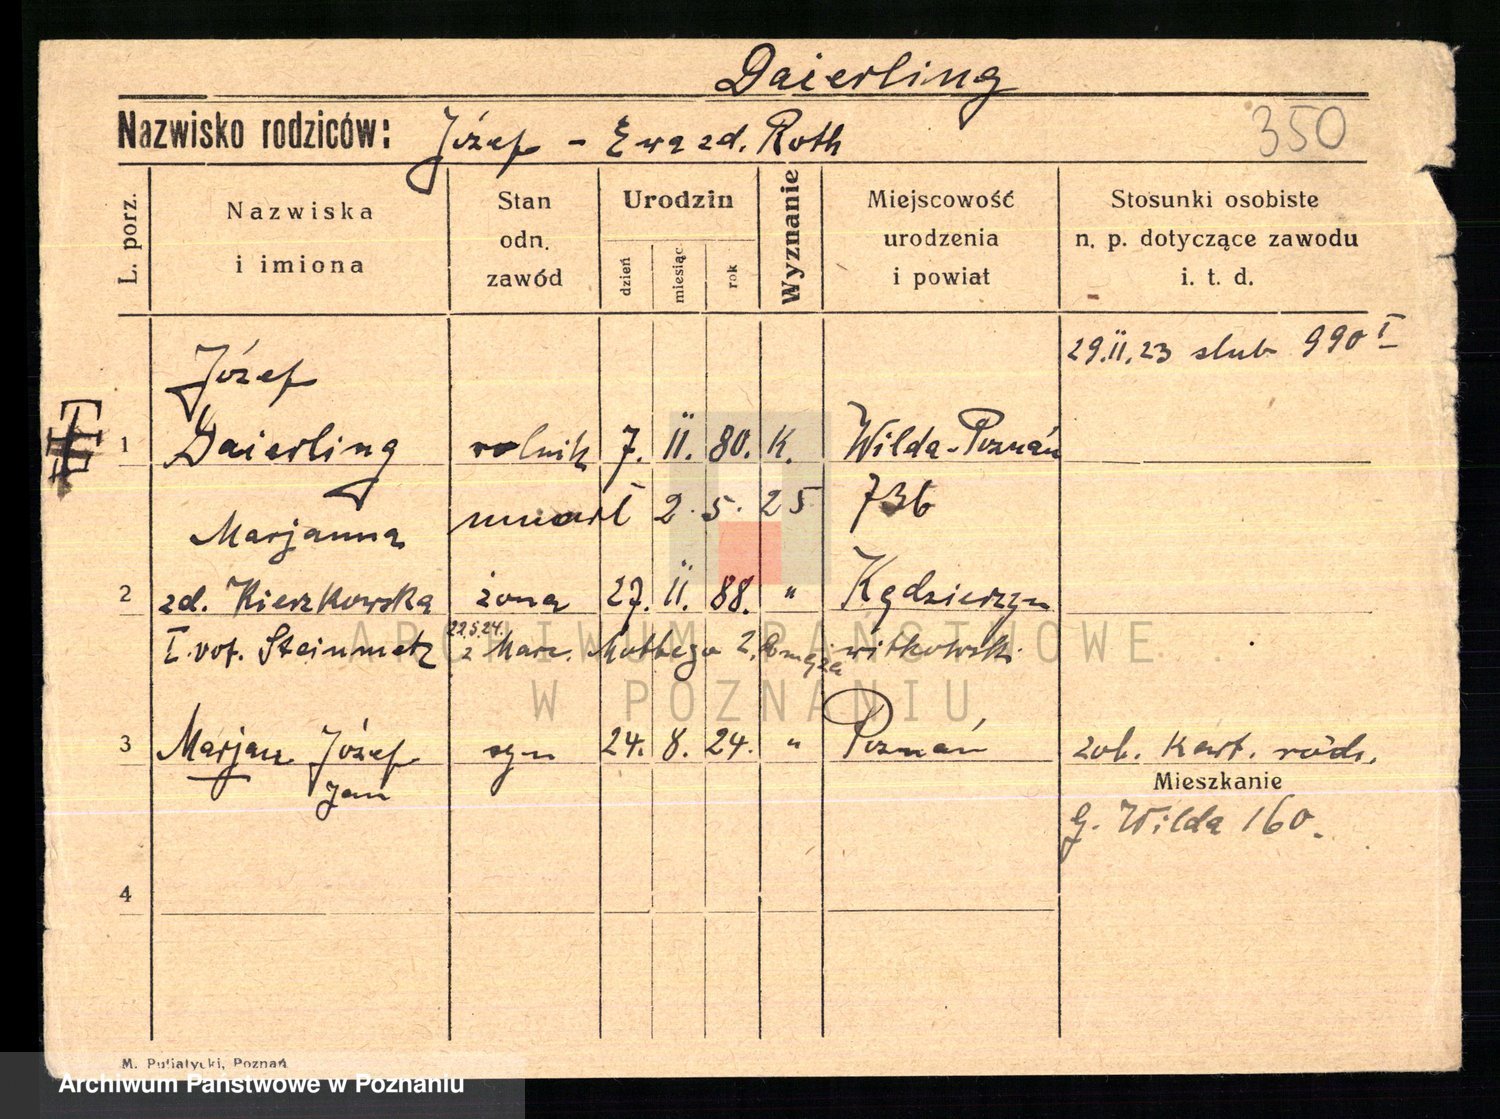 Daierling
Nazwisko rodziców: Józef - Ewa zd. Roth
350
L. porz.
Nazwiska
i imiona
Stan
odn.
zawód
Urodzin
dzień
miesiąc
rok
Wyznanie
Miejscowość
urodzenia
i powiat
Stosunki osobiste
n. p. dotyczące zawodu
i. t. d.
29.II.23 slub 990 I
Józef
1 Daierling rolnik 7. II. 80. K. Wilda-Poznań
umarł 2. 5. 25 736
Marjanna
2 zd. Kierzkowska żona 27. II. 88. " Kędzierzyn
22.5.24.
I. vot. Steinmetz z Marc. 2. witkowski
3 Marjan Józef syn 24. 8. 24. " Poznań zob. kart. rodz.
Jan
Mieszkanie
G. Wilda 160.
4
ARCHIWUM PAŃSTWOWE
W POZNANIU
M. Putiatycki, Poznań
Archiwum Państwowe w Poznaniu